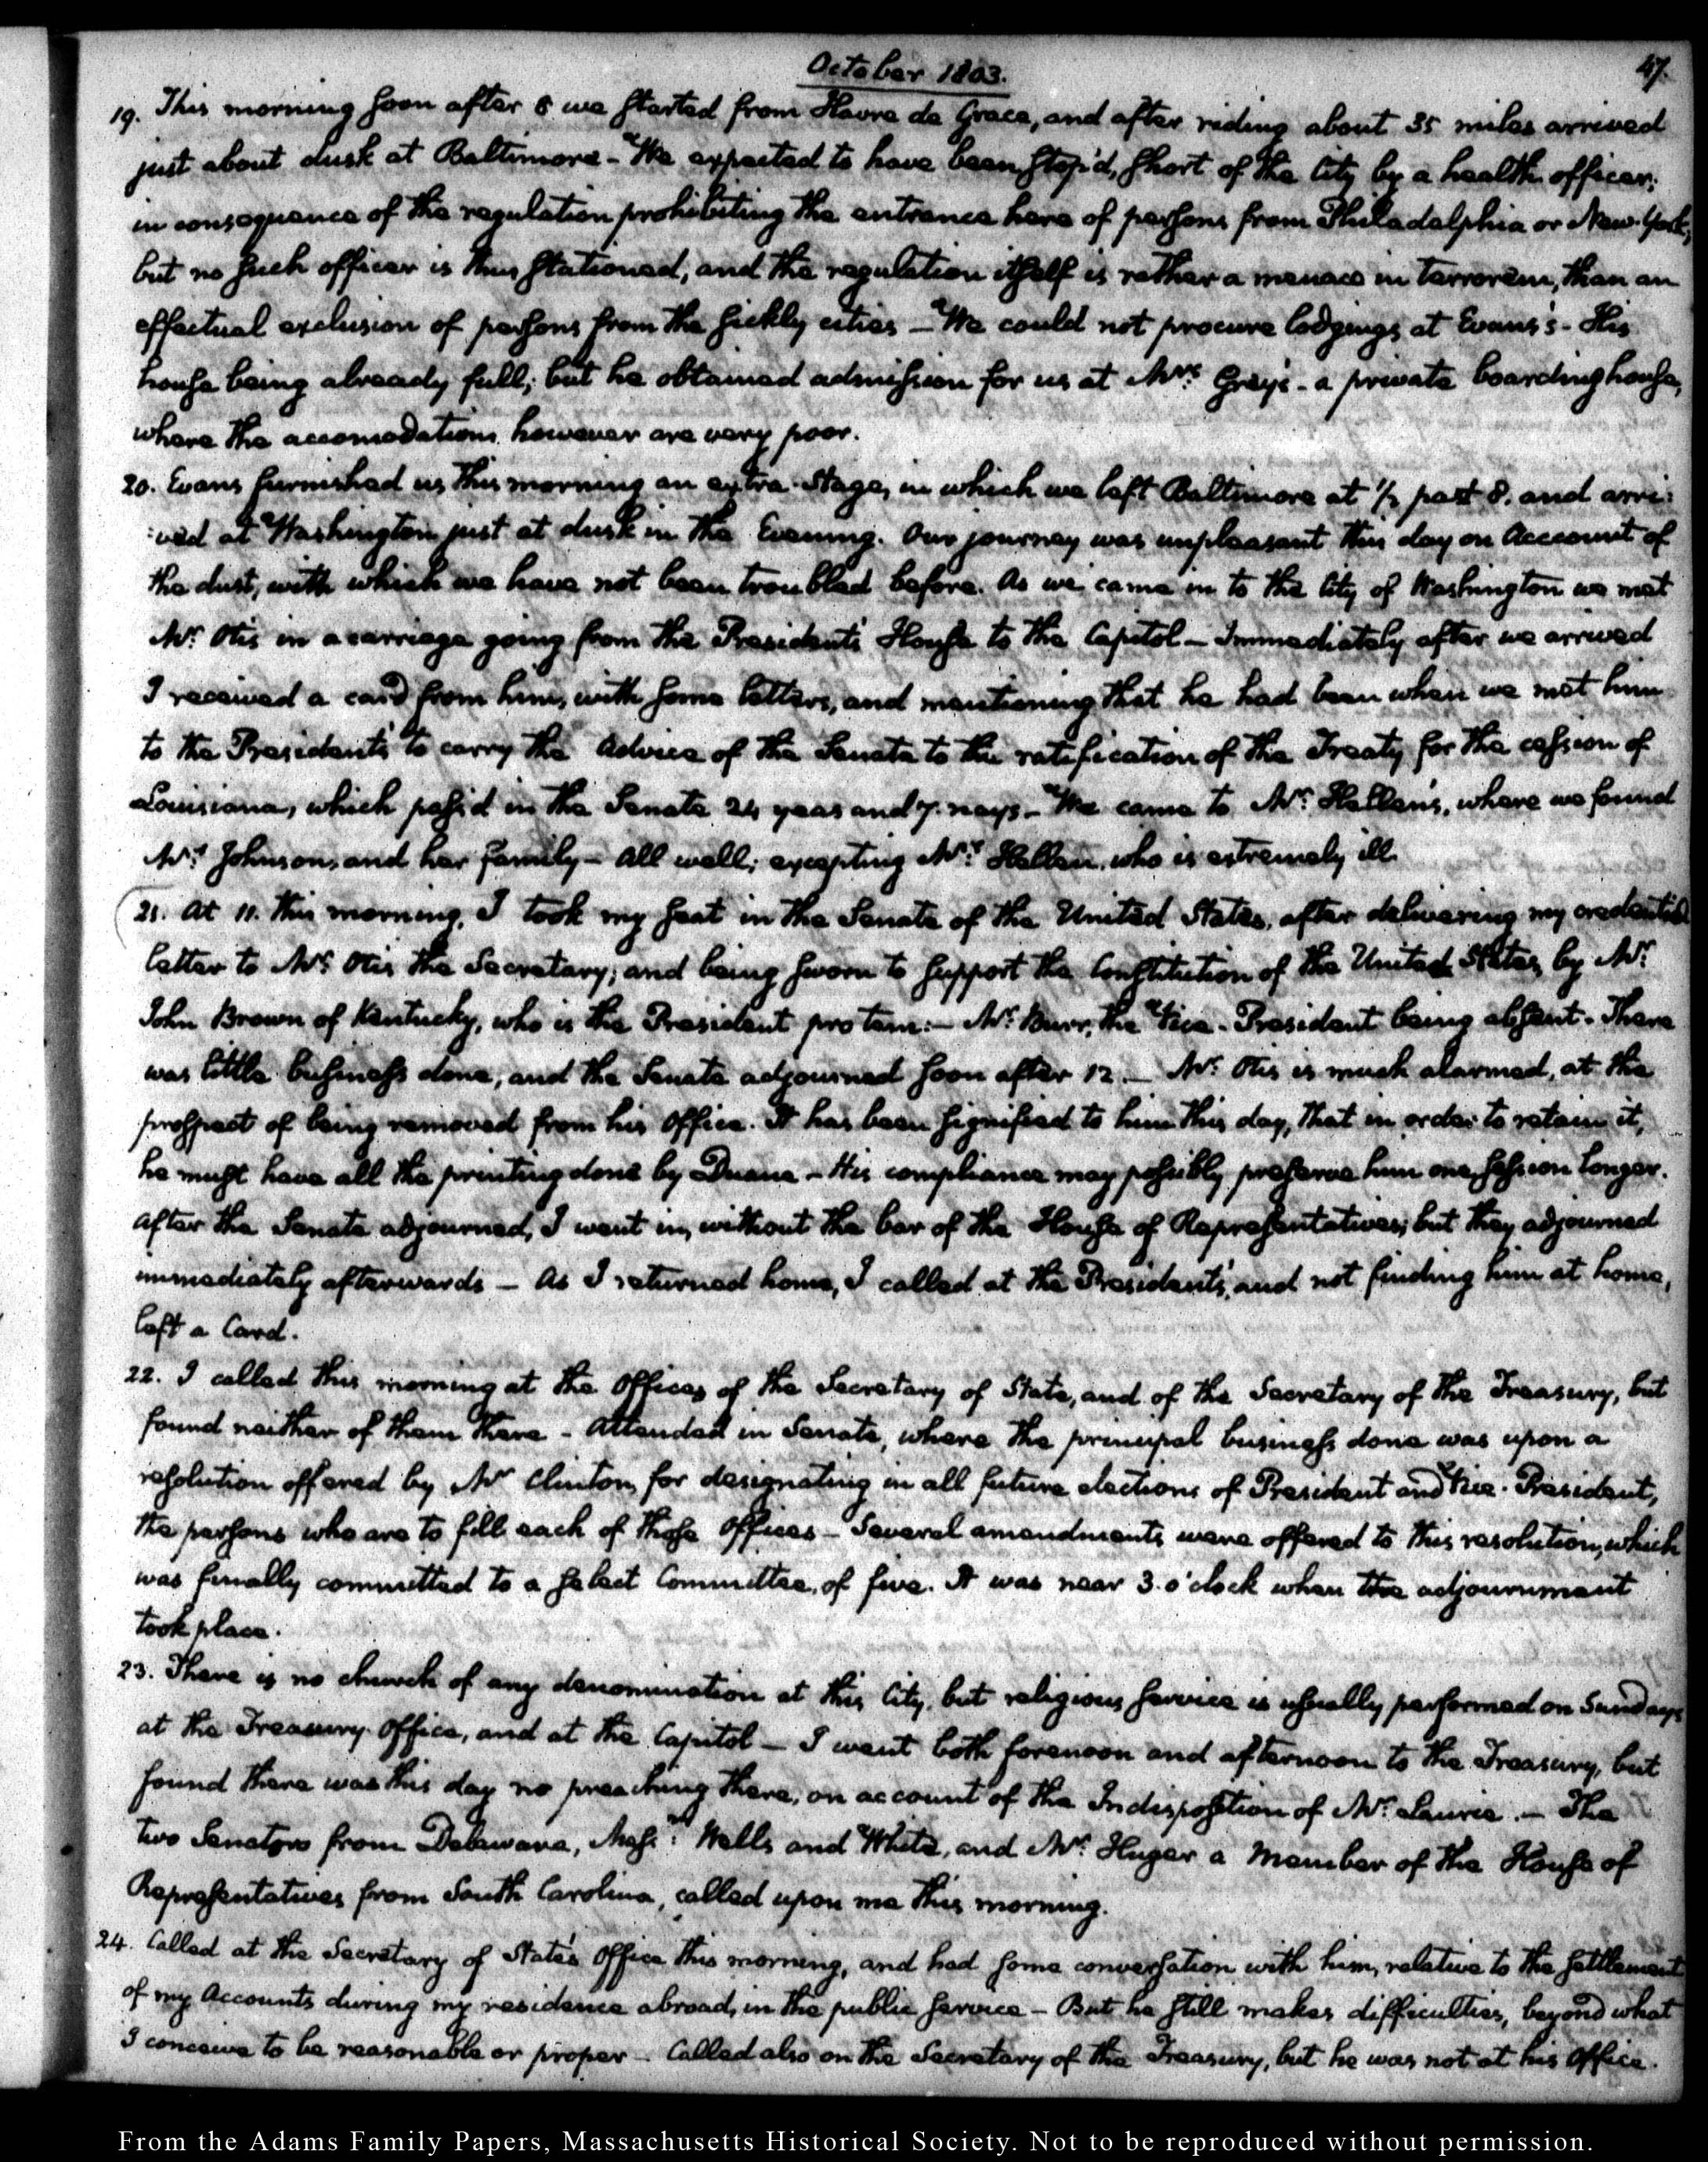 October 1803.
47.
19. This morning soon after 8 we started from Havre de Grace, and after riding about 35 miles arrived
just about dusk at Baltimore - We expected to have been stop'd, short of the City by a health officer;
in consequence of the regulation prohibiting the entrance here of persons from Philadelphia or New-York,
but no such officer is thus stationed, and the regulation itself is rather a menace in terrorem, than an
effectual exclusion of persons from the sickly cities - We could not procure lodgings at Evans's - His
house being already full; but he obtained admission for us at Mrs. Gray's - a private boarding house,
where the accomodations however are very poor.
20. Evans furnished us this morning an extra-Stage, in which we left Baltimore at ½ past 8. and arri:
:ved at Washington just at dusk in the Evening. Our journey was unpleasant this day on Account of
the dust, with which we have not been troubled before. As we came in to the City of Washington we met
Mr. Otis in a carriage going from the President's House to the Capitol - Immediately after we arrived
I received a card from him, with some letters, and mentioning that he had been when we met him
to the President's to carry the Advice of the Senate to the ratification of the Treaty for the cession of
Louisiana, which pass'd in the Senate 24 yeas and 7. nays - We came to Mr. Hellen's, where we found
Mrs. Johnson, and her family - All well; excepting Mrs. Hellen, who is extremely ill.
21. At 11. this morning, I took my seat in the Senate of the United States, after delivering my credential
letter to Mr. Otis the Secretary; and being sworn to support the Constitution of the United States, by Mr.
John Brown of Kentucky, who is the President pro tem: - Mr. Burr, the Vice-President being absent. There
was little business done, and the Senate adjourned soon after 12 - Mr. Otis is much alarmed, at the
prospect of being removed from his Office. It has been signified to him this day, that in order to retain it,
he must have all the printing done by Duane - His compliance may possibly preserve him one session longer.
After the Senate adjourned, I went in, without the bar of the House of Representatives; but they adjourned
immediately afterwards - As I returned home, I called at the President's, and not finding him at home,
left a Card.
22. I called this morning at the Offices of the Secretary of State, and of the Secretary of the Treasury, but
found neither of them there - Attended in Senate, where the principal business done was upon a
resolution offered by Mr. Clinton, for designating in all future elections of President and Vice-President,
the persons who are to fill each of those Offices - Several amendments were offered to this resolution, which
was finally committed to a select Committee, of five. It was near 3. o'clock when the adjournment
took place.
23. There is no church of any denomination at this City, but religious service is usually performed on Sundays
at the Treasury Office, and at the Capitol - I went both forenoon and afternoon to the Treasury, but
found there was this day no preaching there, on account of the Indisposition of Mr. Laurie. - The
two Senators from Delaware, Messrs. Wells and White, and Mr. Huger a Member of the House of
Representatives from South Carolina, called upon me this morning.
24. Called at the Secretary of State's Office this morning, and had some conversation with him, relative to the settlement
of my Accounts during my residence abroad, in the public service - But he still makes difficulties, beyond what
I conceive to be reasonable or proper - Called also on the Secretary of the Treasury, but he was not at his Office.
From the Adams Family Papers, Massachusetts Historical Society. Not to be reproduced without permission.